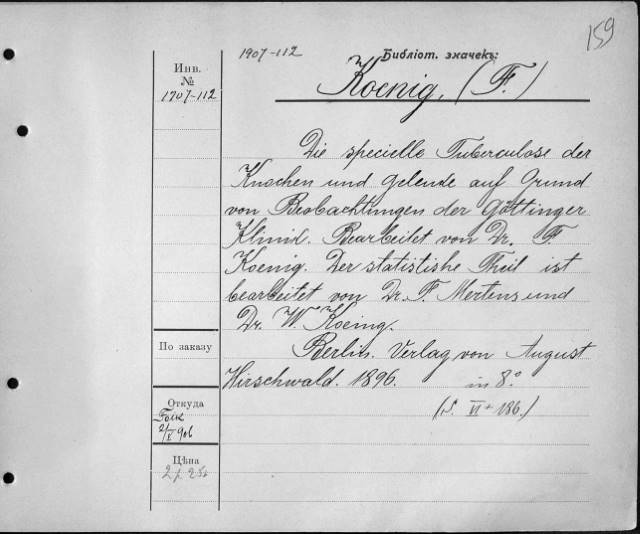 159
1907-112
Библіот. значекъ:
Инв.
№
1907-112
Koenig, (F.)
Die specielle Tuberculose der
Knochen und Gelenke auf Grund
von Beobachtungen der Göttinger
Klinik. Bearbeitet von Dr. F.
Koenig. Der statistishe Theil ist
bearbeitet von Dr. F. Mertens und
Dr. W. Koeing.
Berlin. Verlag von August
Hirschwald. 1896. in 8.°
(S. VI + 186.)
По заказу
Откуда
2/X 906
Цѣна
2 р.